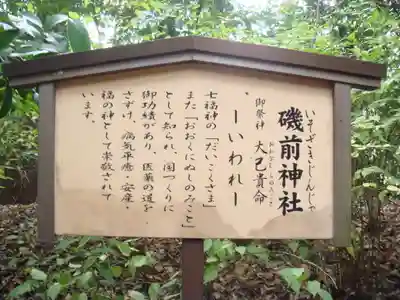 いそざきじんじゃ
磯前神社
御祭神 大己貴命
おおなむちのみこと
ーいわれー
七福神の「だいこくさま」
また「おおくにぬしのみこと」
として知られ、国づくりに
御功績があり、医薬の道を
さずけ、病気平癒・安産・
福の神として崇敬されて
います。